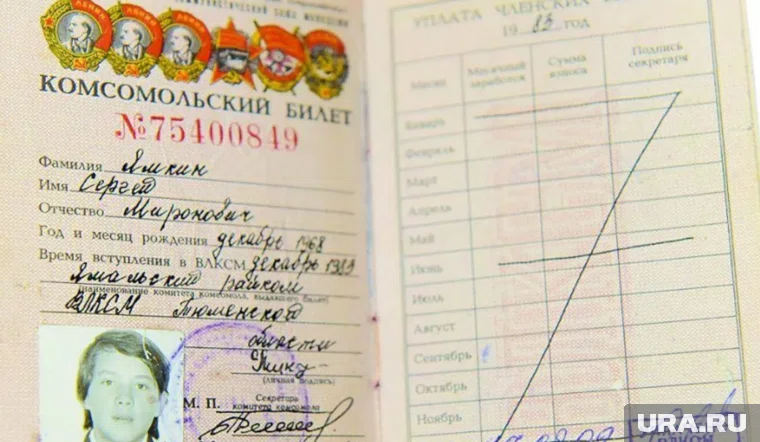 КОМСОМОЛЬСКИЙ БИЛЕТ
№75400849
Фамилия Ямкин
Имя Сергей
Отчество Миронович
Год и месяц рождения декабрь 1968
Время вступления в ВЛКСМ декабрь 1983
Ямальский райком
(наименование комитета комсомола, выдавшего билет)
ВЛКСМ Тюменского
области
(личная подпись)
М. П.
Секретарь
комитета комсомола
УПЛАТА ЧЛЕНСКИХ
1983 год
Месяц Месячный заработок Сумма взноса Подпись секретаря
Январь
Февраль
Март
Апрель
Май
Июнь
Июль
Август
Сентябрь
Октябрь
Ноябрь
URA.RU